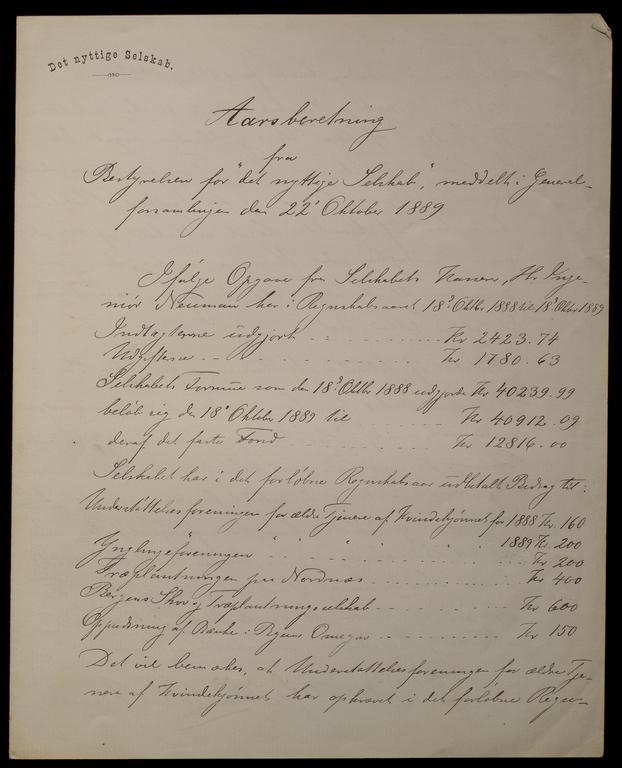 Det nyttige Selskab.
Aarsberetning
fra
Bestyrelsen for "det nyttige Selskab", meddelt i General-
forsamlingen den 22' Oktober 1889
Ifølge Opgave fra Selskabets Kasserer, Hr. Inge-
niør Neuman har i Regnskabsaaret 18' Oktbr 1888 til 18' Oktbr 1889
Indtægterne udgjort Kr 2423.74
Udgifterne Kr 1780.63
Selskabets Formue som den 18' Oktbr 1888 udgjorde Kr 40239.99
beløb sig den 18' Oktober 1889 til Kr 40912.09
deraf det faste Fond Kr 12816.00
Selskabet har i det forløbne Regnskabsaar udbetalt Bidrag til:
Understøttelsesforeningen for ældre Tjenere af Kvindekjønnet for 1888 Kr. 160
" " " " " 1889 Kr. 200
Ynglingeforeningen Kr 200
Træplantningen paa Nordnæs Kr 400
Bergens Skov og Træplantningsselskab Kr 600
Oppudsning af Bænke i Byens Omegn Kr 150
Det vil bemærkes, at Understøttelsesforeningen for ældre Tje-
nere af Kvindekjønnet har ophævet i det forløbne Regn-